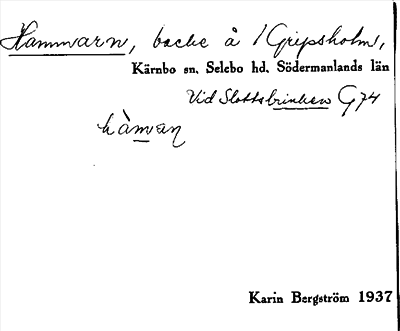 Hammarn, backe å /Gripsholm,
Kärnbo sn. Selebo hd. Södermanlands län
Vid Slottsbrinken G74
hàmaɳ
Karin Bergström 1937